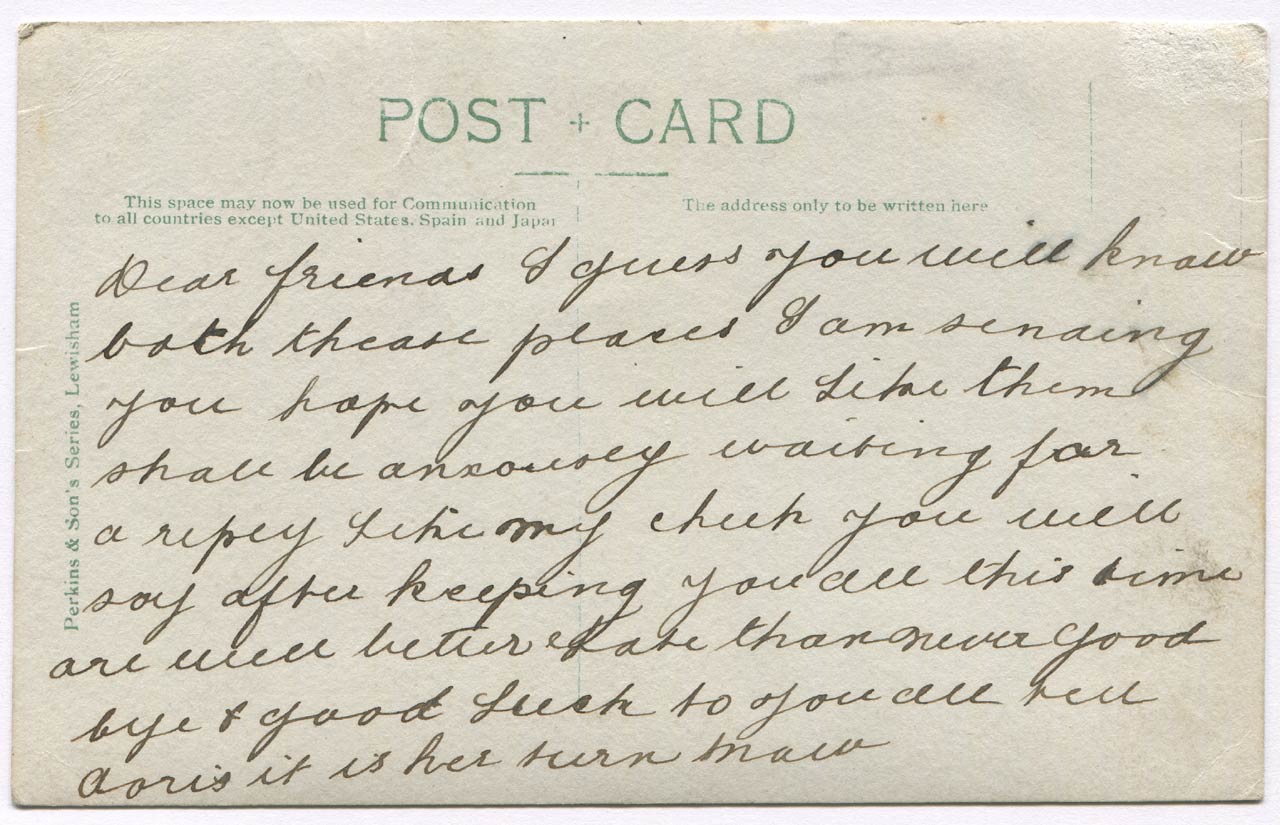 POST + CARD
This space may now be used for Communication
to all countries except United States. Spain and Japan
The address only to be written here
Perkins & Son's Series, Lewisham
Dear friends I guess you will know
both thease places I am sending
you hope you will like them
shall be anxousley waiting for
a repley like my cheek you will
say after keeping you all this time
are well better late than never Good
bye & good luck to you all tell
doris it is her turn now